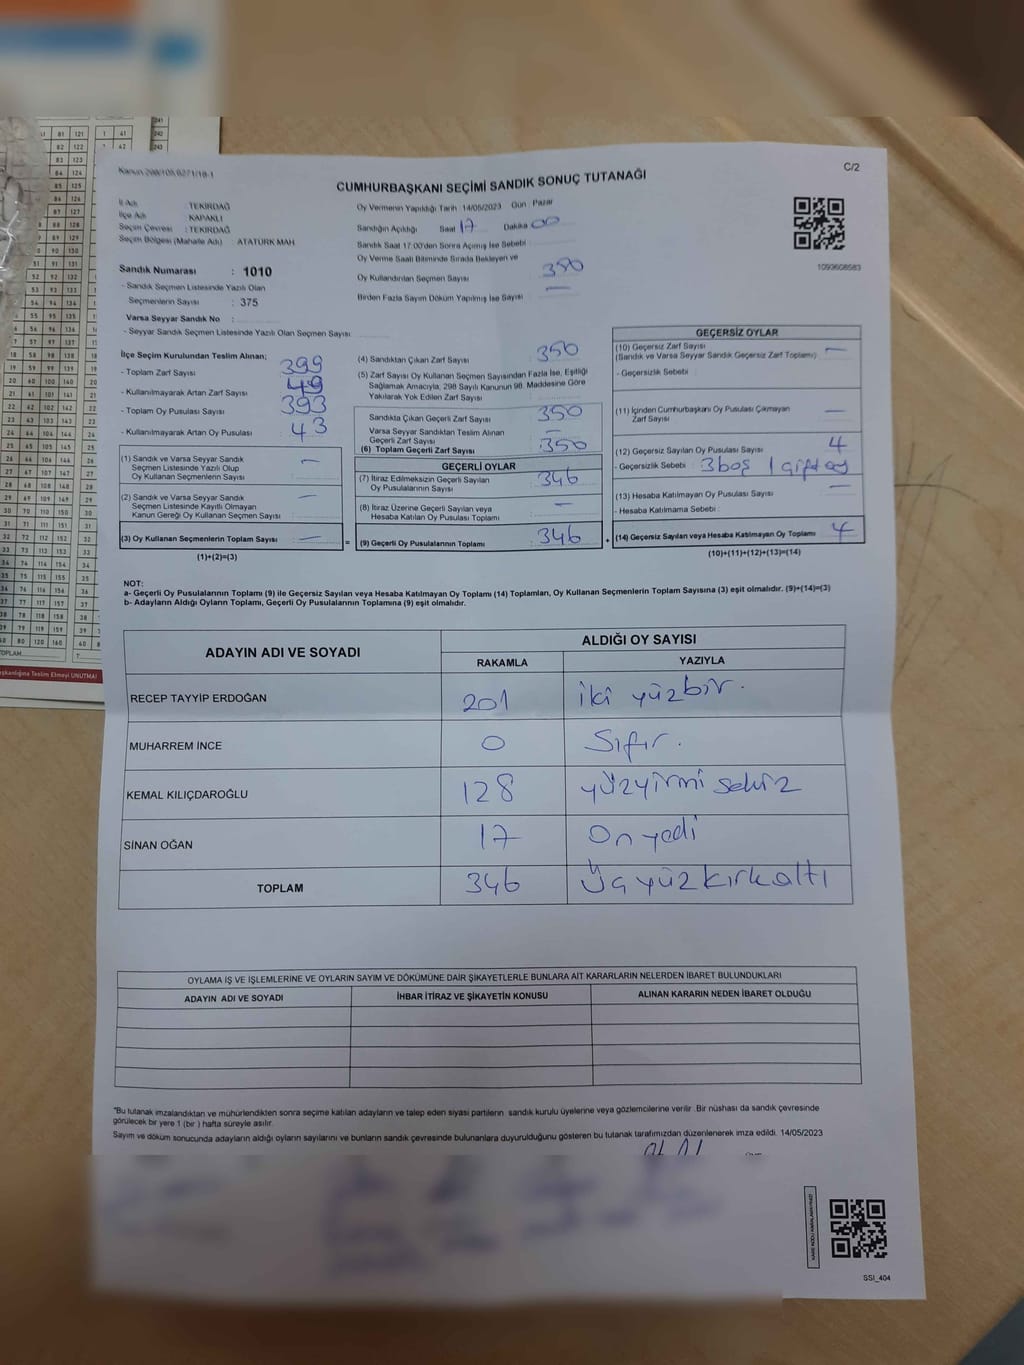 C/2
Kanun 298/105,6271/18-1
CUMHURBAŞKANI SEÇİMİ SANDIK SONUÇ TUTANAĞI
İl Adı : TEKİRDAĞ
İlçe Adı : KAPAKLI
Seçim Çevresi : TEKİRDAĞ
Seçim Bölgesi (Mahalle Adı) : ATATÜRK MAH
Oy Vermenin Yapıldığı Tarih : 14/05/2023 Gün : Pazar
Sandığın Açıldığı Saat 17 Dakika 00
Sandık Saat 17:00'den Sonra Açılmış İse Sebebi
Oy Verme Saati Bitiminde Sırada Bekleyen ve
Oy Kullandırılan Seçmen Sayısı 350
Birden Fazla Sayım Döküm Yapılmış İse Sayısı —
1093608583
Sandık Numarası : 1010
- Sandık Seçmen Listesinde Yazılı Olan
Seçmenlerin Sayısı : 375
Varsa Seyyar Sandık No :
- Seyyar Sandık Seçmen Listesinde Yazılı Olan Seçmen Sayısı
İlçe Seçim Kurulundan Teslim Alınan;
- Toplam Zarf Sayısı 399
- Kullanılmayarak Artan Zarf Sayısı 49
- Toplam Oy Pusulası Sayısı 393
- Kullanılmayarak Artan Oy Pusulası 43
(1) Sandık ve Varsa Seyyar Sandık
Seçmen Listesinde Yazılı Olup
Oy Kullanan Seçmenlerin Sayısı —
(2) Sandık ve Varsa Seyyar Sandık
Seçmen Listesinde Kayıtlı Olmayan
Kanun Gereği Oy Kullanan Seçmen Sayısı —
(3) Oy Kullanan Seçmenlerin Toplam Sayısı —
(1)+(2)=(3)
=
(4) Sandıktan Çıkan Zarf Sayısı 350
(5) Zarf Sayısı Oy Kullanan Seçmen Sayısından Fazla İse, Eşitliği
Sağlamak Amacıyla, 298 Sayılı Kanunun 98. Maddesine Göre
Yakılarak Yok Edilen Zarf Sayısı
Sandıkta Çıkan Geçerli Zarf Sayısı 350
Varsa Seyyar Sandıktan Teslim Alınan
Geçerli Zarf Sayısı —
(6) Toplam Geçerli Zarf Sayısı 350
GEÇERLİ OYLAR
(7) İtiraz Edilmeksizin Geçerli Sayılan
Oy Pusulalarının Sayısı 346
(8) İtiraz Üzerine Geçerli Sayılan veya
Hesaba Katılan Oy Pusulası Toplamı —
(9) Geçerli Oy Pusulalarının Toplamı 346
+
GEÇERSİZ OYLAR
(10) Geçersiz Zarf Sayısı —
(Sandık ve Varsa Seyyar Sandık Geçersiz Zarf Toplamı)
- Geçersizlik Sebebi :
(11) İçinden Cumhurbaşkanı Oy Pusulası Çıkmayan
Zarf Sayısı —
(12) Geçersiz Sayılan Oy Pusulası Sayısı 4
- Geçersizlik Sebebi : 3 boş 1 çift oy
(13) Hesaba Katılmayan Oy Pusulası Sayısı —
- Hesaba Katılmama Sebebi :
(14) Geçersiz Sayılan veya Hesaba Katılmayan Oy Toplamı 4
(10)+(11)+(12)+(13)=(14)
NOT:
a- Geçerli Oy Pusulalarının Toplamı (9) ile Geçersiz Sayılan veya Hesaba Katılmayan Oy Toplamı (14) Toplamları, Oy Kullanan Seçmenlerin Toplam Sayısına (3) eşit olmalıdır. (9)+(14)=(3)
b- Adayların Aldığı Oyların Toplamı, Geçerli Oy Pusulalarının Toplamına (9) eşit olmalıdır.
ADAYIN ADI VE SOYADI ALDIĞI OY SAYISI
RAKAMLA YAZIYLA
RECEP TAYYİP ERDOĞAN 201 iki yüzbir.
MUHARREM İNCE 0 Sıfır.
KEMAL KILIÇDAROĞLU 128 yüzyirmi sekiz
SİNAN OĞAN 17 On yedi
TOPLAM 346 Üç yüzkırkaltı
OYLAMA İŞ VE İŞLEMLERİNE VE OYLARIN SAYIM VE DÖKÜMÜNE DAİR ŞİKAYETLERLE BUNLARA AİT KARARLARIN NELERDEN İBARET BULUNDUKLARI
ADAYIN ADI VE SOYADI İHBAR İTİRAZ VE ŞİKAYETİN KONUSU ALINAN KARARIN NEDEN İBARET OLDUĞU
*Bu tutanak imzalandıktan ve mühürlendikten sonra seçime katılan adayların ve talep eden siyasi partilerin sandık kurulu üyelerine veya gözlemcilerine verilir. Bir nüshası da sandık çevresinde
görülecek bir yere 1 (bir ) hafta süreyle asılır.
Sayım ve döküm sonucunda adayların aldığı oyların sayılarını ve bunların sandık çevresinde bulunanlara duyurulduğunu gösteren bu tutanak tarafımızdan düzenlenerek imza edildi. 14/05/2023
SSI_404